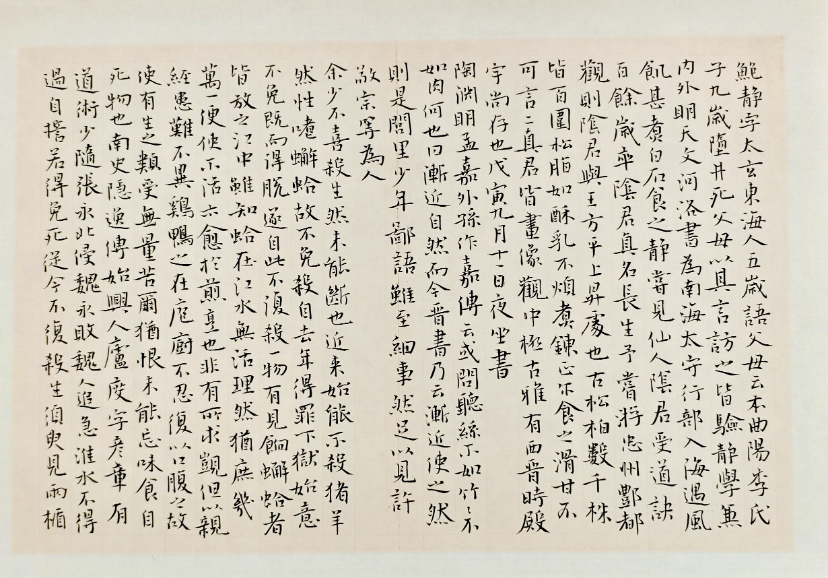 鮑静字太玄東海人五歲語父母云本曲陽李氏
子九歲墮井死父母以其言訪之皆驗静學兼
内外明天文河洛書為南海太守行部入海遇風
飢甚煮白石食之静嘗見仙人陰君受道訣
百餘歲卒陰君真名長生予嘗游忠州酆都
觀則陰君與王方平上昇處也古松柏數千株
皆百圍松脂如酥乳不煩煮鍊正尔食之滑甘不
可言二真君皆畫像觀中極古雅有西晋時殿
宇尚存也戊寅九月十一日夜坐書
陶淵明孟嘉外孫作嘉傳云或問聽絲不如竹竹不
如肉何也曰漸近自然而今晋書乃云漸近使之然
則是閭里少年鄙語雖至細事然足以見許
敬宗等為人
余少不喜殺生然未能斷也近来始能不殺猪羊
然性嗜蠏蛤故不免殺自去年得罪下獄始意
不免既而得脱遂自此不復殺一物有見餉蠏蛤者
皆放之江中雖知蛤在江水無活理然猶庶幾
萬一便使不活亦愈於煎烹也非有所求覬但以親
經患難不異鷄鴨之在庖廚不忍復以口腹之故
使有生之類受無量苦爾猶恨未能忘味食自
死物也南史隱逸傳始興人盧度字彦章有
道術少隨張永北侵魏永敗魏人追急淮水不得
過自誓若得免死從今不復殺生須臾見兩楯